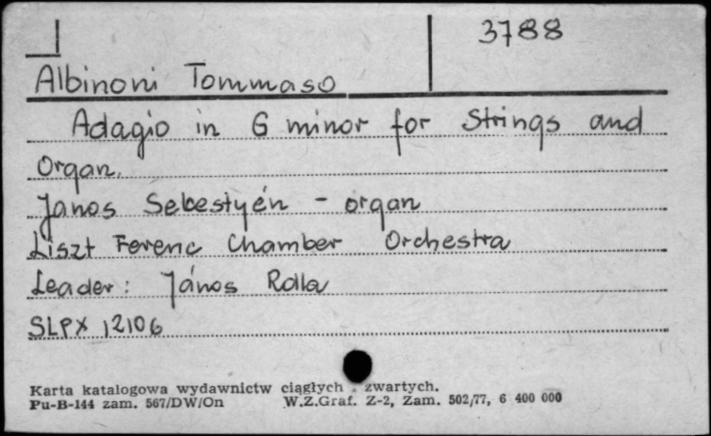 3788
Albinoni Tommaso
Adagio in G minor for Strings and
Organ.
Janos Sebestyén - organ
Liszt Ferenc Chamber Orchestra
Leader: János Rolla
SLPX 12106
Karta katalogowa wydawnictw ciągłych . zwartych.
Pu-B-144 zam. 567/DW/On W.Z.Graf. Z-2, Zam. 502/77, 6 400 000